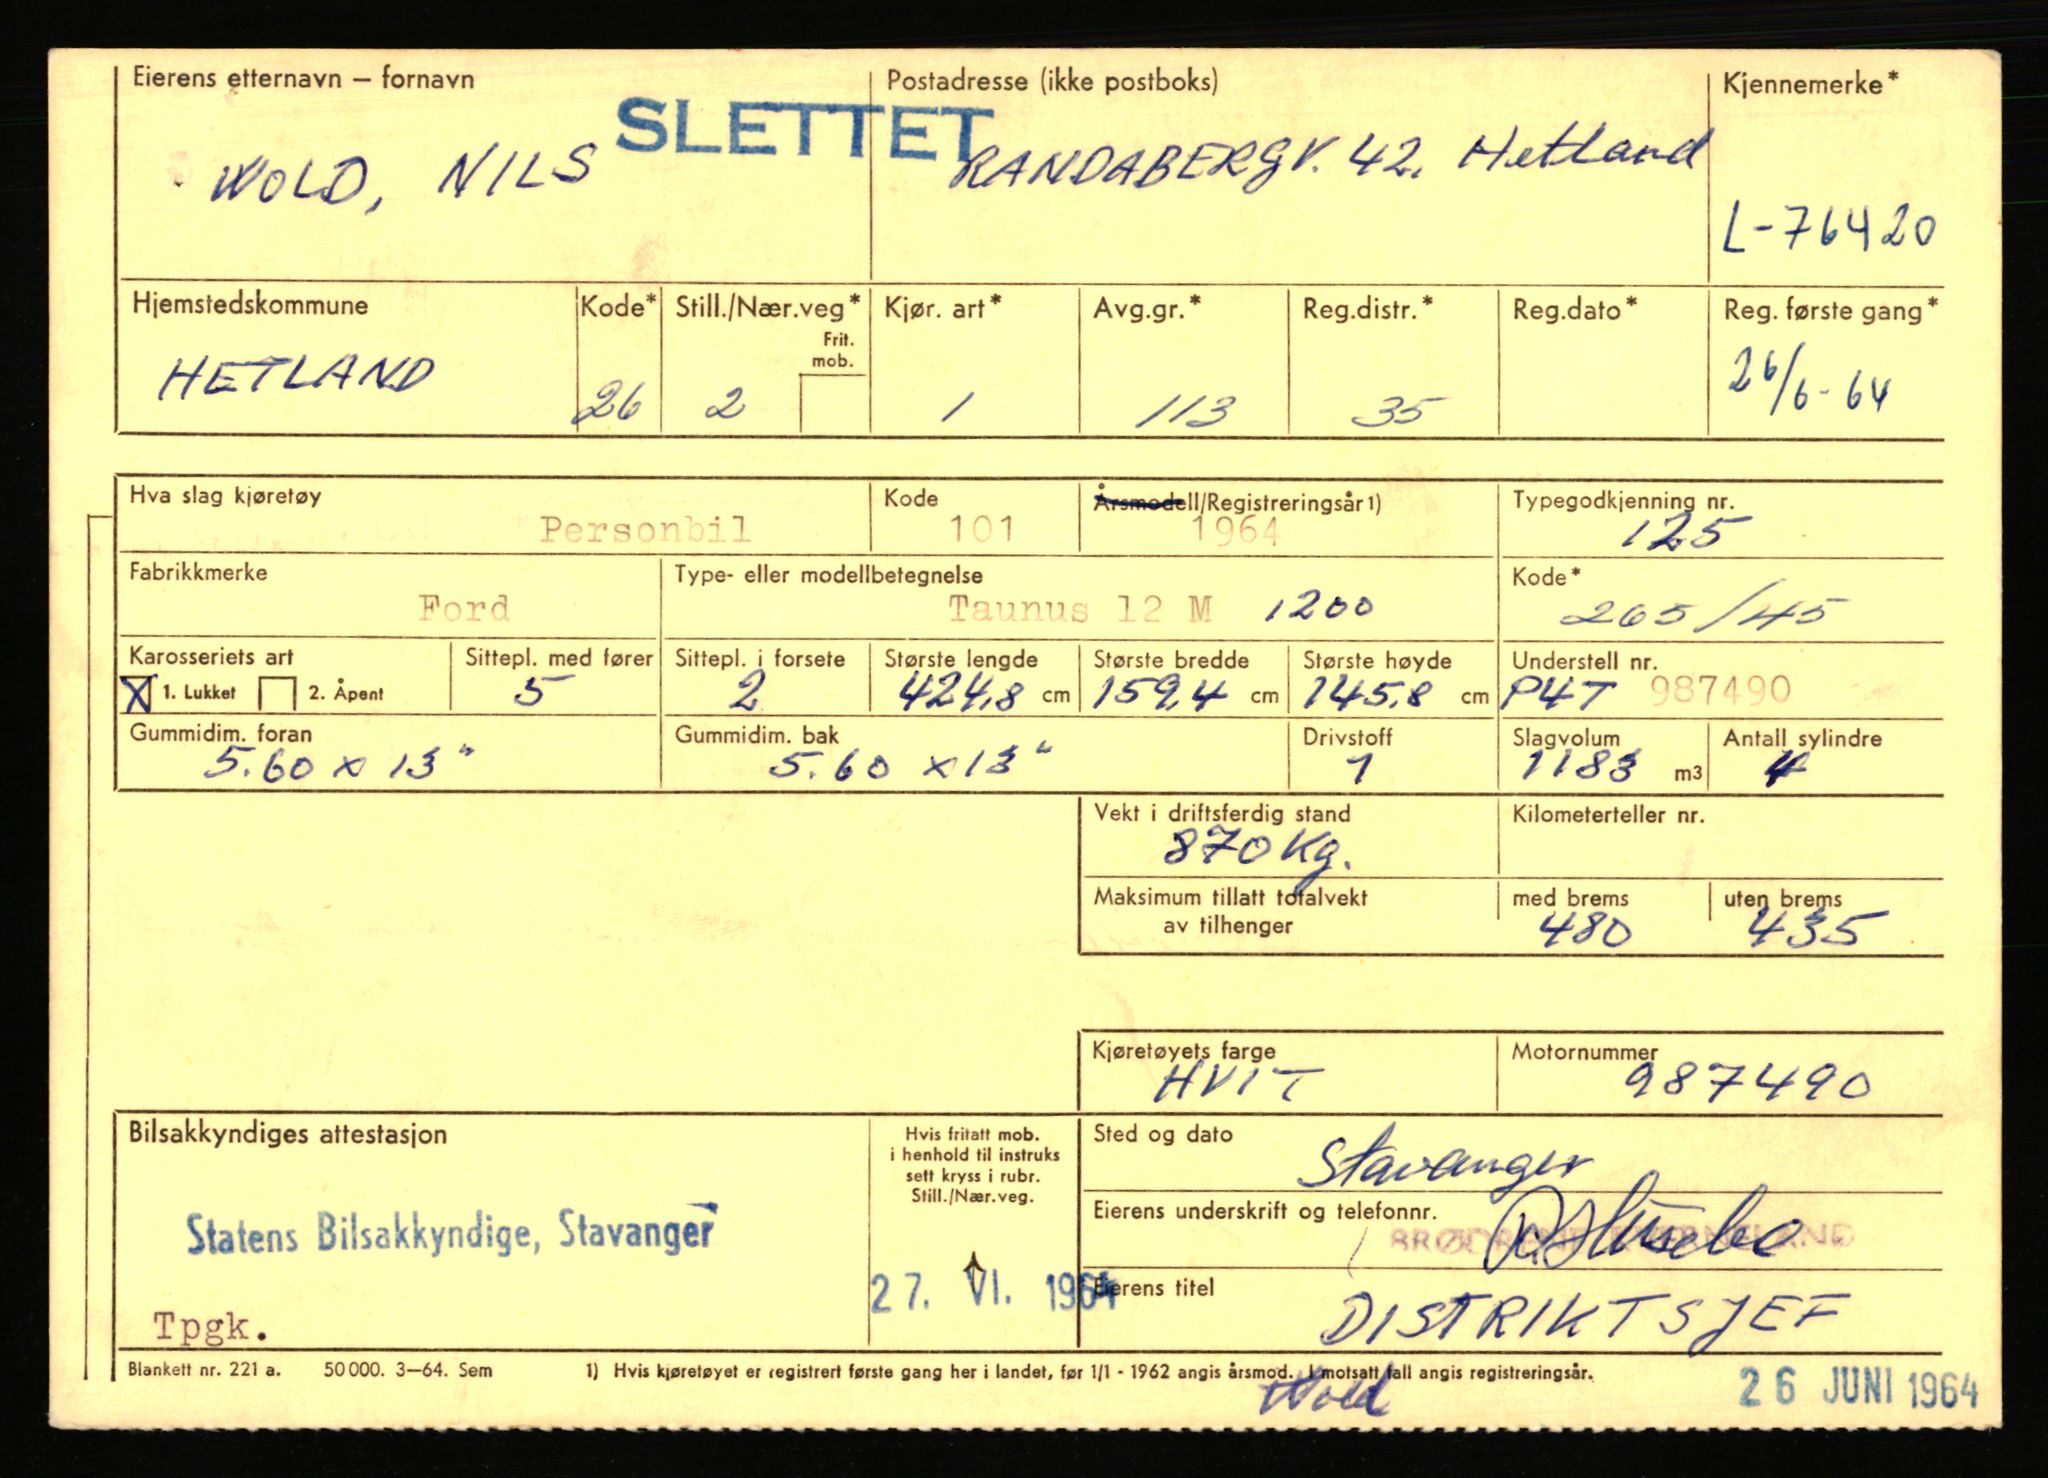 Eierens etternavn – fornavn Postadresse (ikke postboks) Kjennemerke*
SLETTET
WOLD, NILS RANDABERGV. 42, Hetland
L-76420
Hjemstedskommune Kode* Still./Nær.veg* Kjør. art* Avg.gr.* Reg.distr.* Reg.dato* Reg. første gang*
Frit.
mob.
HETLAND 26 2 1 113 35 26/6-64
Hva slag kjøretøy Kode Årsmodell/Registreringsår 1) Typegodkjenning nr.
Personbil 101 1964 125
Fabrikkmerke Type- eller modellbetegnelse Kode*
Ford Taunus 12 M 1200 265/45
Karosseriets art Sittepl. med fører Sittepl. i forsete Største lengde Største bredde Største høyde Understell nr.
X 1. Lukket 2. Åpent 5 2 424,8 cm 159,4 cm 145,8 cm P4T 987490
Gummidim. foran Gummidim. bak Drivstoff Slagvolum Antall sylindre
5.60 x 13" 5.60 x 13" 1 1183 m3 4
Vekt i driftsferdig stand Kilometerteller nr.
870 Kg.
Maksimum tillatt totalvekt med brems uten brems
av tilhenger 480 435
Kjøretøyets farge Motornummer
HVIT 987490
Bilsakkyndiges attestasjon Hvis fritatt mob. Sted og dato
i henhold til instruks
sett kryss i rubr.
Still./Nær.veg.
Stavanger
Eierens underskrift og telefonnr.
Statens Bilsakkyndige, Stavanger
27. VI. 1964 Eierens titel
Tpgk. DISTRIKTSJEF
Blankett nr. 221 a. 50 000. 3–64. Sem 1) Hvis kjøretøyet er registrert første gang her i landet, før 1/1 - 1962 angis årsmod. I motsatt fall angis registreringsår.
Wold 26 JUNI 1964